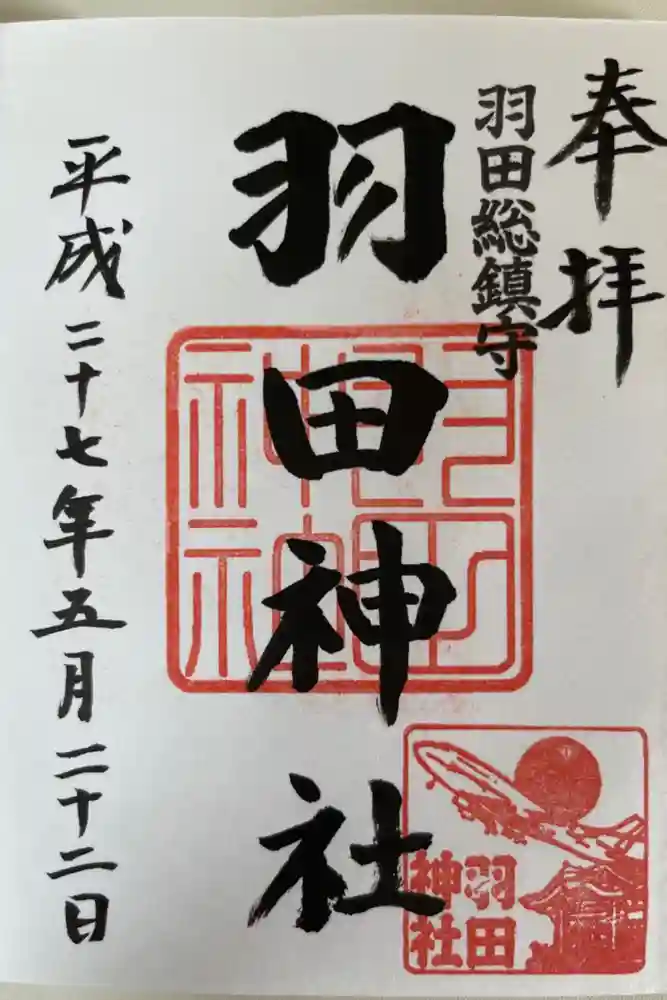 奉拝
羽田総鎮守
羽田神社
平成二十七年五月二十二日
羽田
神社